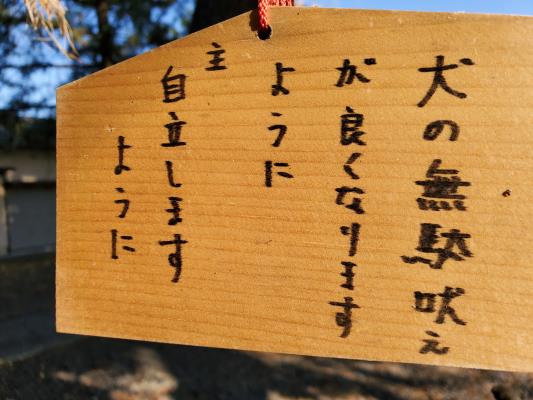 犬の無駄吠え
が良くなります
ように
主
自立します
ように